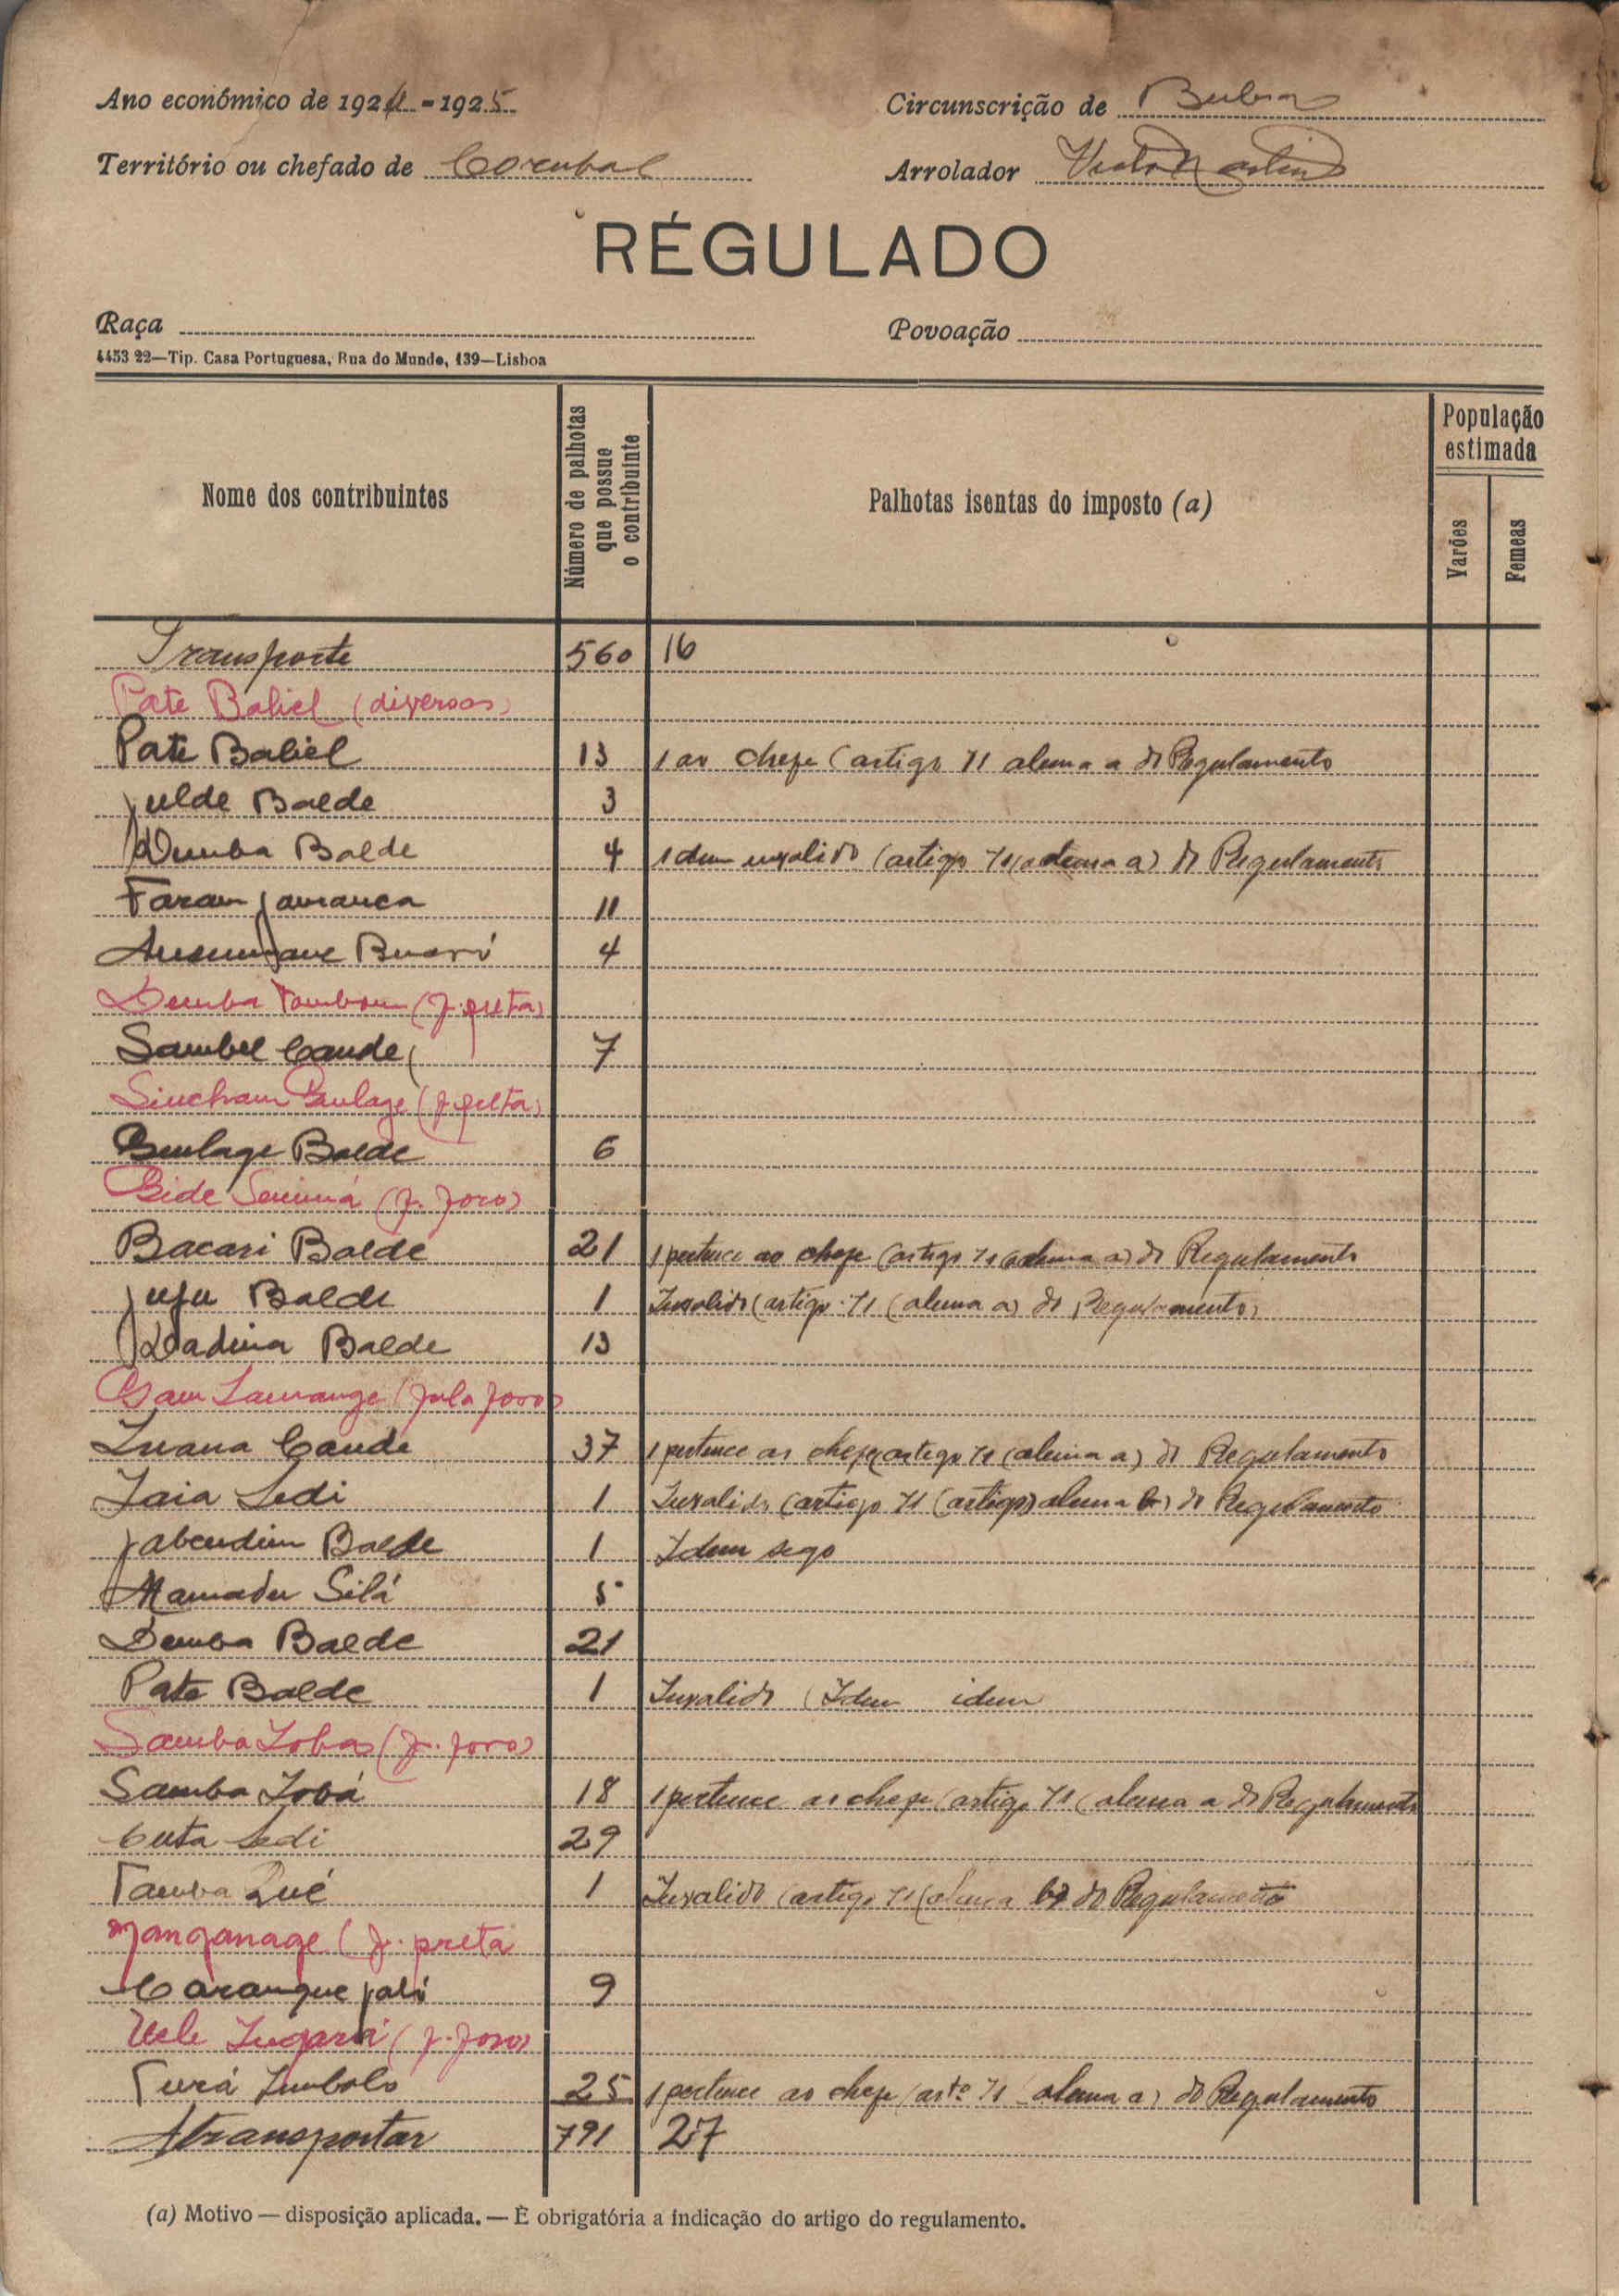 Ano económico de 1924-1925
Circunscrição de Buba
Território ou chefado de Corubal
Arrolador Martins
RÉGULADO
Raça
Povoação
4453 22—Tip. Casa Portuguesa, Rua do Mundo, 139—Lisboa
Nome dos contribuintes
Número de palhotas que possue o contribuinte
Palhotas isentas do imposto (a)
População estimada
Varões
Femeas
Transporte 560 16
Pate Babiel (diversos)
Pate Babiel 13 1 ao chefe (artigo 71 alinea a do Regulamento
Julde Balde 3
Demba Balde 4 1 dum invalido (artigo 71 (alinea a) do Regulamento
Faram Jamanca 11
Buaró 4
Demba (f. preta)
Sambel Cande 7
Sincham Bulage (f. preta)
Bulage Balde 6
(f. foro)
Bacari Balde 21 1 pertence ao chefe (artigo 71 (alinea a) do Regulamento
Juju Balde 1 Invalido (artigo 71 (alinea a) do Regulamento)
Balde 13
(fula foro)
Cande 37 1 pertence ao chefe (artigo 71 (alinea a) do Regulamento
Iaia Sedi 1 Invalido (artigo 71 (artigo) alinea b) do Regulamento
Balde 1 Idem sego
Mamadu Silá 5
Demba Balde 21
Pate Balde 1 Invalido (Idem idem
Samba (f. foro)
Samba 18 1 pertence ao chefe (artigo 71 (alinea a do Regulamento
Cuta Sedi 29
Tamba 1 Invalido (artigo 71 (alinea b) do Regulamento
Manganage (f. preta
Carangue 9
(f. foro)
Turá 25 1 pertence ao chefe (artº 71 alinea a) do Regulamento
Atransportar 791 27
(a) Motivo — disposição aplicada. — É obrigatória a indicação do artigo do regulamento.